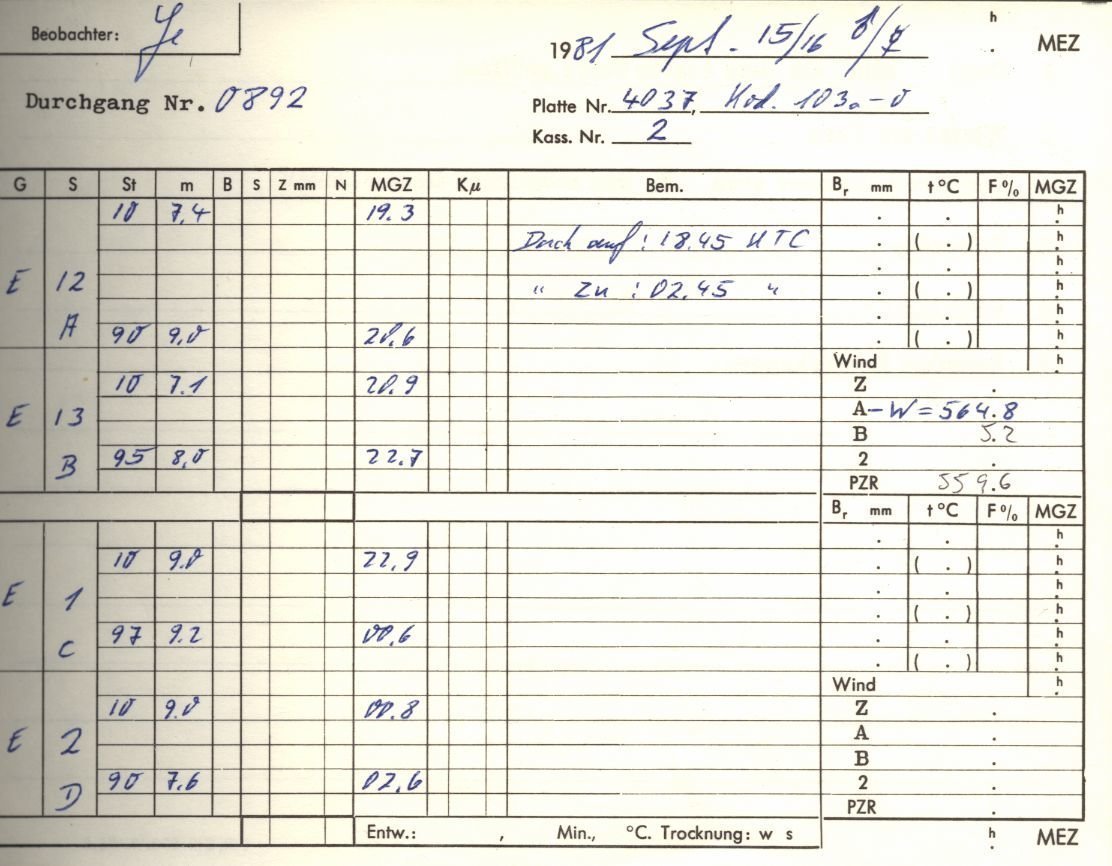 Beobachter: Je
h
1981 Sept. 15/16 . MEZ
Durchgang Nr. 0892
Platte Nr. 4037, Kod. 103a-0
Kass. Nr. 2
G S St m B S Z mm N MGZ Kμ Bem. Br mm t °C F% MGZ
10 7,4 19.3 . . h
Dach auf: 18.45 UTC . ( . ) h
. . h
E 12 " zu : 02.45 " . ( . ) h
. . h
A 90 9,0 20,6 . ( . ) h
Wind h
10 7.1 20.9 Z .
E 13 A-W = 564.8
B 5.2
B 95 8,0 22,7 2 .
PZR 559.6
Br mm t °C F% MGZ
. . h
10 9.0 22,9 . ( . ) h
. . h
E 1 . ( . ) h
C 97 9.2 00,6 . . h
. ( . ) h
Wind h
10 9.0 00.8 Z .
E 2 A .
B .
D 90 7.6 02,6 2 .
PZR .
Entw.: , Min., °C. Trocknung: w s h . MEZ